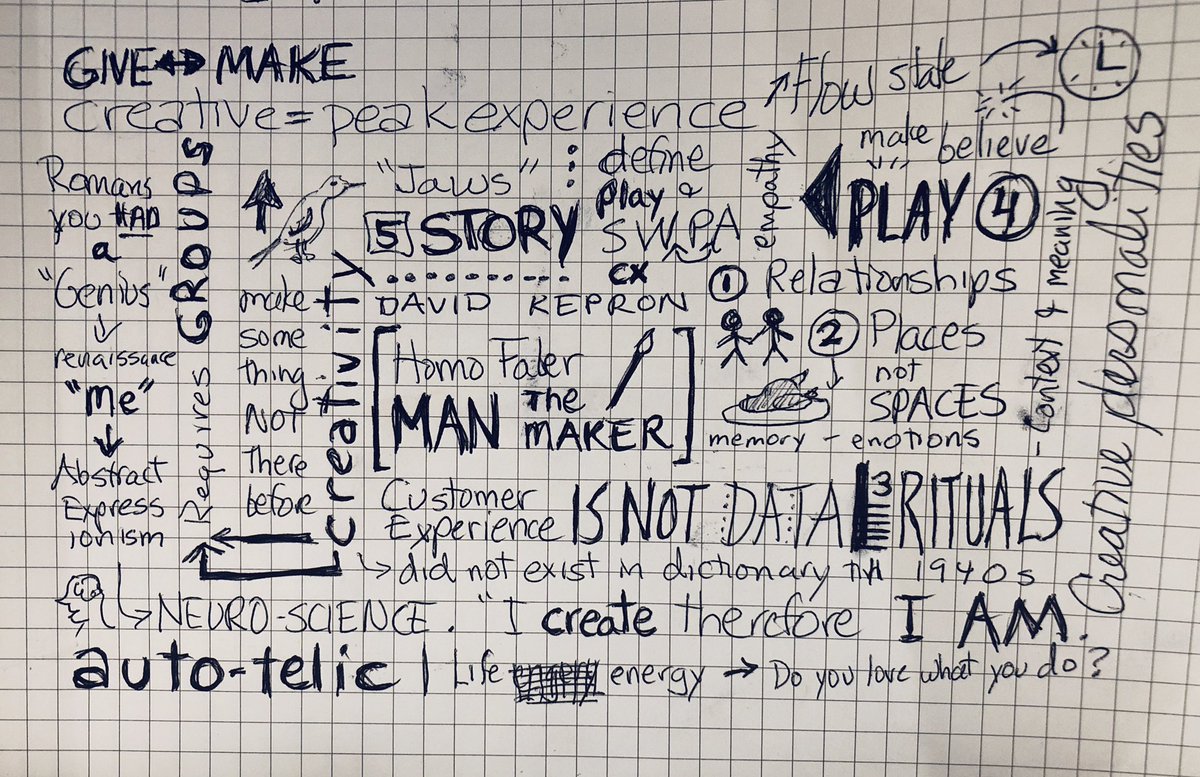 GIVE ↔ MAKE
creative = peak experience
↗ Flow state
make believe
Romans
you HAD
a
"Genius"
↓
renaissance
"me"
↓
Abstract
Express
ionism
Requres GROUPS
make
some
thing
NOT
There
before
creativity
"Jaws" :
5 STORY
define
Play &
SWPA
CX
empathy
PLAY 4
DAVID KEPRON
[Homo Faber
MAN THE
MAKER]
1 Relationships
2 Places
not
SPACES
memory - emotions
- Context & meaning
Creative personalities
Customer
Experience IS NOT DATA
3 RITUALS
↳ did not exist in dictionary till 1940s
↳ NEURO-SCIENCE. "I create therefore I AM.
auto-telic | Life energy → Do you love what you do?